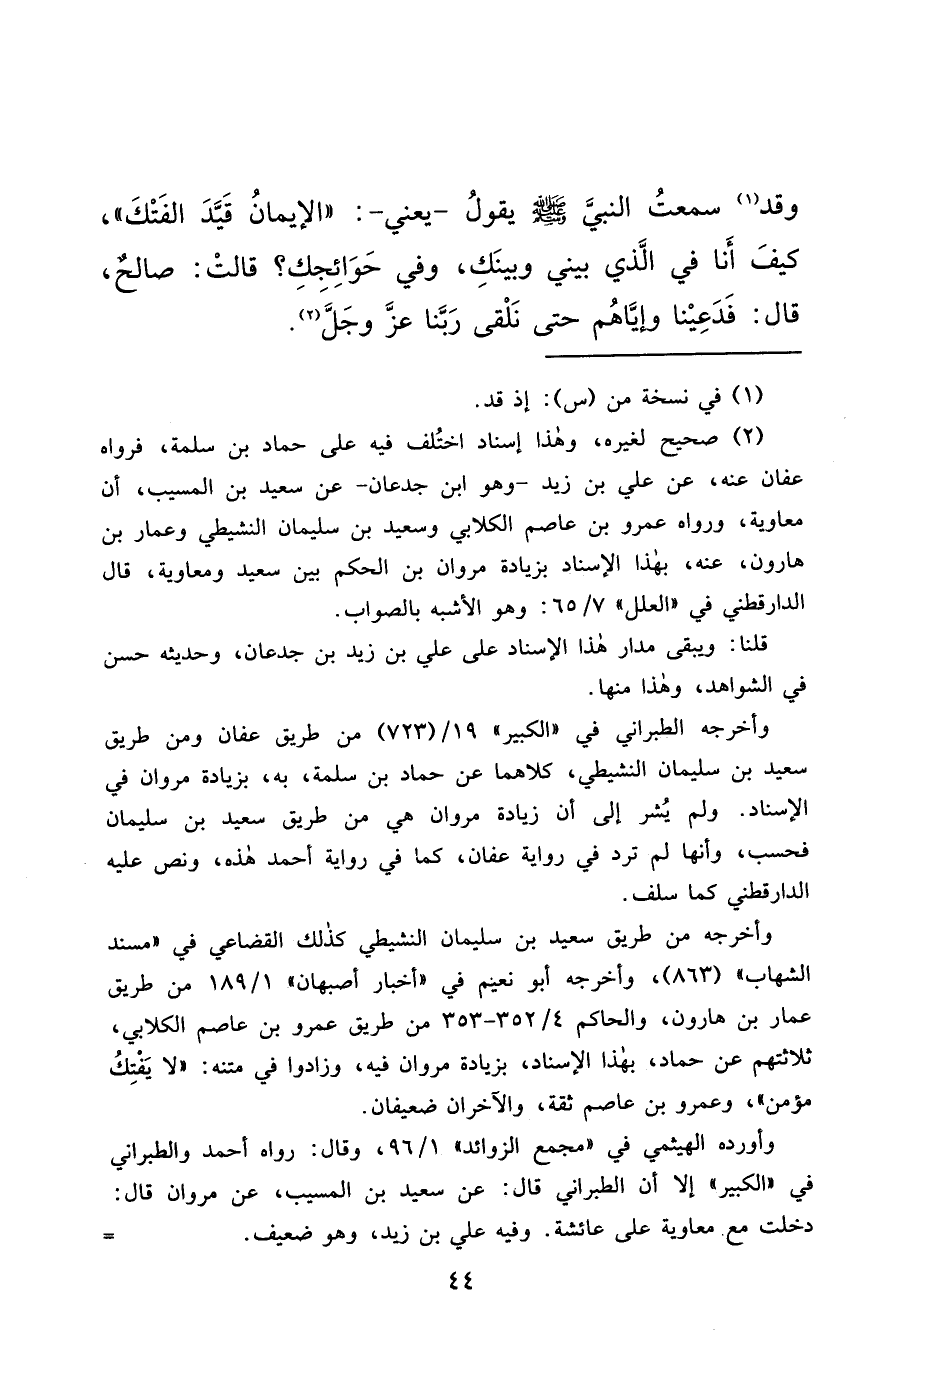 وقد(١) سمعتُ النبيَّ ﷺ يقولُ -يعني-: «الإيمانُ قَيَّدَ الفَتْكَ»،
كيفَ أَنا في الَّذي بيني وبينَكِ، وفي حَوَائِجِكِ؟ قالتْ: صالحٌ،
قال: فَدَعِيْنا وإيَّاهُم حتى نَلْقى رَبَّنا عزَّ وجَلَّ(٢).
(١) في نسخة من (س): إذ قد.
(٢) صحيح لغيره، وهٰذا إسناد اختُلف فيه على حماد بن سلمة، فرواه
عفان عنه، عن علي بن زيد -وهو ابن جدعان- عن سعيد بن المسيب، أن
معاوية، ورواه عمرو بن عاصم الكلابي وسعيد بن سليمان النشيطي وعمار بن
هارون، عنه، بهٰذا الإسناد بزيادة مروان بن الحكم بين سعيد ومعاوية، قال
الدارقطني في «العلل» ٧/ ٦٥: وهو الأشبه بالصواب.
قلنا: ويبقى مدار هٰذا الإسناد على علي بن زيد بن جدعان، وحديثه حسن
في الشواهد، وهٰذا منها.
وأخرجه الطبراني في «الكبير» ١٩/(٧٢٣) من طريق عفان ومن طريق
سعيد بن سليمان النشيطي، كلاهما عن حماد بن سلمة، به، بزيادة مروان في
الإسناد. ولم يُشر إلى أن زيادة مروان هي من طريق سعيد بن سليمان
فحسب، وأنها لم ترد في رواية عفان، كما في رواية أحمد هٰذه، ونص عليه
الدارقطني كما سلف.
وأخرجه من طريق سعيد بن سليمان النشيطي كذٰلك القضاعي في «مسند
الشهاب» (٨٦٣)، وأخرجه أبو نعيم في «أخبار أصبهان» ١/ ١٨٩ من طريق
عمار بن هارون، والحاكم ٤/ ٣٥٢-٣٥٣ من طريق عمرو بن عاصم الكلابي،
ثلاثتهم عن حماد، بهٰذا الإسناد، بزيادة مروان فيه، وزادوا في متنه: «لا يَفْتِكُ
مؤمن»، وعمرو بن عاصم ثقة، والآخران ضعيفان.
وأورده الهيثمي في «مجمع الزوائد» ١/ ٩٦، وقال: رواه أحمد والطبراني
في «الكبير» إلا أن الطبراني قال: عن سعيد بن المسيب، عن مروان قال:
دخلت مع معاوية على عائشة. وفيه علي بن زيد، وهو ضعيف. =
٤٤